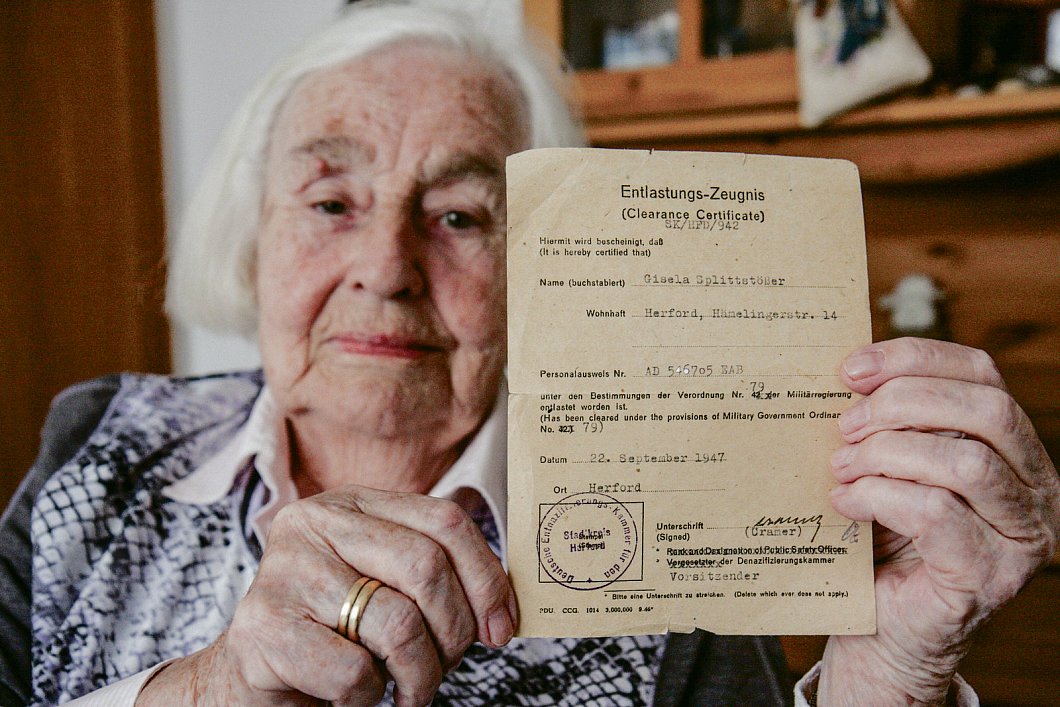 Entlastungs-Zeugnis
(Clearance Certificate)
SK/HFD/942
Hiermit wird bescheinigt, daß
(It is hereby certified that)
Name (buchstabiert) Gisela Splittstößer
Wohnhaft Herford, Hämelingerstr. 14
Personalausweis Nr. AD 546705 EAB
79
unter den Bestimmungen der Verordnung Nr. der Militärregierung
entlastet worden ist.
(Has been cleared under the provisions of Military Government Ordinan
No. 79)
Datum 22. September 1947
Ort Herford
Deutsche Entnazifizierungs-Kammer für den
Stadtkreis
Herford
Unterschrift
(Signed)
(Cramer)
* Rank and Designation of Public Safety Officer.
* Vorgesetzter der Denazifizierungskammer
Vorsitzender
* Bitte eine Unterschrift zu streichen. (Delete which ever does not apply.)
PDU. CCG. 1014 3,000,000 9.46